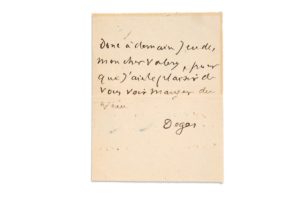 Donc à demain Jeudi,
mon cher Valery, pour
que j'aie le plaisir de
vous voir manger du
veau
Degas